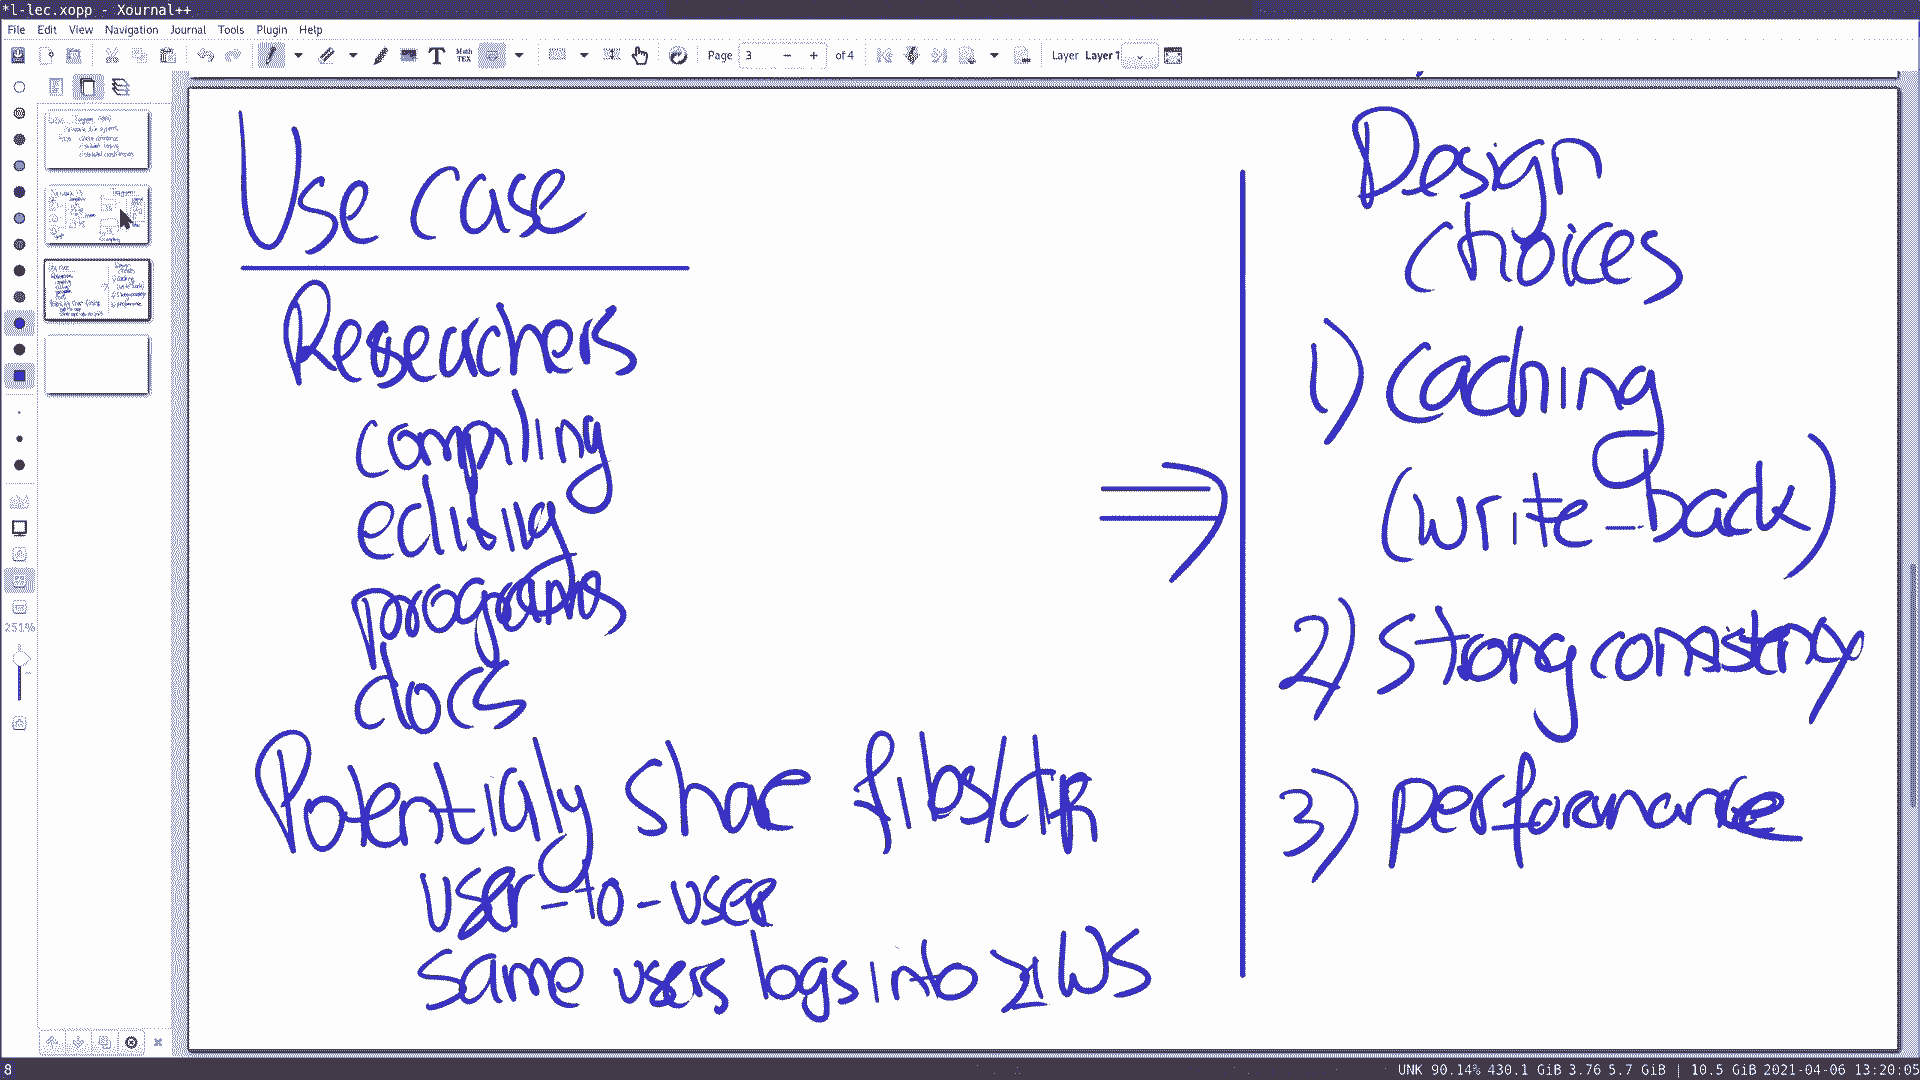 *l-lec.xopp - Xournal++
File Edit View Navigation Journal Tools Plugin Help
Page 3 of 4 Layer Layer 1
251%
Use case
Researchers
compiling
editing
programs
docs
Potentially share files/dir
user-to-user
same users logs into ≥1 WS
⇒
Design
choices
1) Caching
(write-back)
2) Strong consistency
3) performance
8
UNK 90.14% 430.1 GiB 3.76 5.7 GiB | 10.5 GiB 2021-04-06 13:20:05